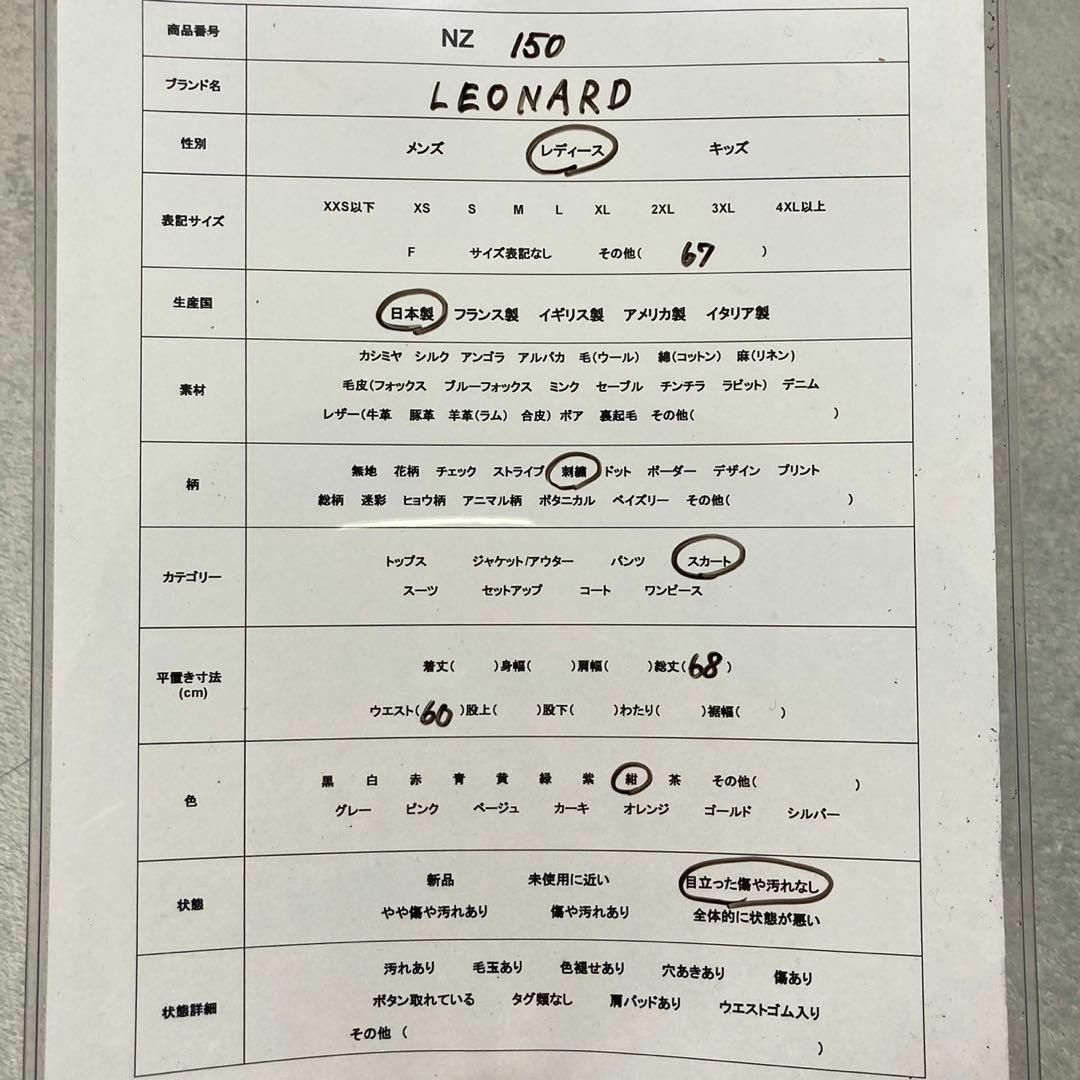 商品番号 NZ 150
ブランド名 LEONARD
性別 メンズ レディース キッズ
XXS以下 XS S M L XL 2XL 3XL 4XL以上
表記サイズ
F サイズ表記なし その他( 67 )
生産国 日本製 フランス製 イギリス製 アメリカ製 イタリア製
カシミヤ シルク アンゴラ アルパカ 毛(ウール) 綿(コットン) 麻(リネン)
素材 毛皮(フォックス ブルーフォックス ミンク セーブル チンチラ ラビット) デニム
レザー(牛革 豚革 羊革(ラム) 合皮) ボア 裏起毛 その他( )
無地 花柄 チェック ストライプ 刺繍 ドット ボーダー デザイン プリント
柄
総柄 迷彩 ヒョウ柄 アニマル柄 ボタニカル ペイズリー その他( )
トップス ジャケット/アウター パンツ スカート
カテゴリー
スーツ セットアップ コート ワンピース
着丈( )身幅( )肩幅( )総丈(68)
平置き寸法
(cm)
ウエスト(60)股上( )股下( )わたり( )裾幅( )
黒 白 赤 青 黄 緑 紫 紺 茶 その他( )
色
グレー ピンク ベージュ カーキ オレンジ ゴールド シルバー
新品 未使用に近い 目立った傷や汚れなし
状態
やや傷や汚れあり 傷や汚れあり 全体的に状態が悪い
汚れあり 毛玉あり 色褪せあり 穴あきあり 傷あり
状態詳細 ボタン取れている タグ類なし 肩パッドあり ウエストゴム入り
その他 ( )